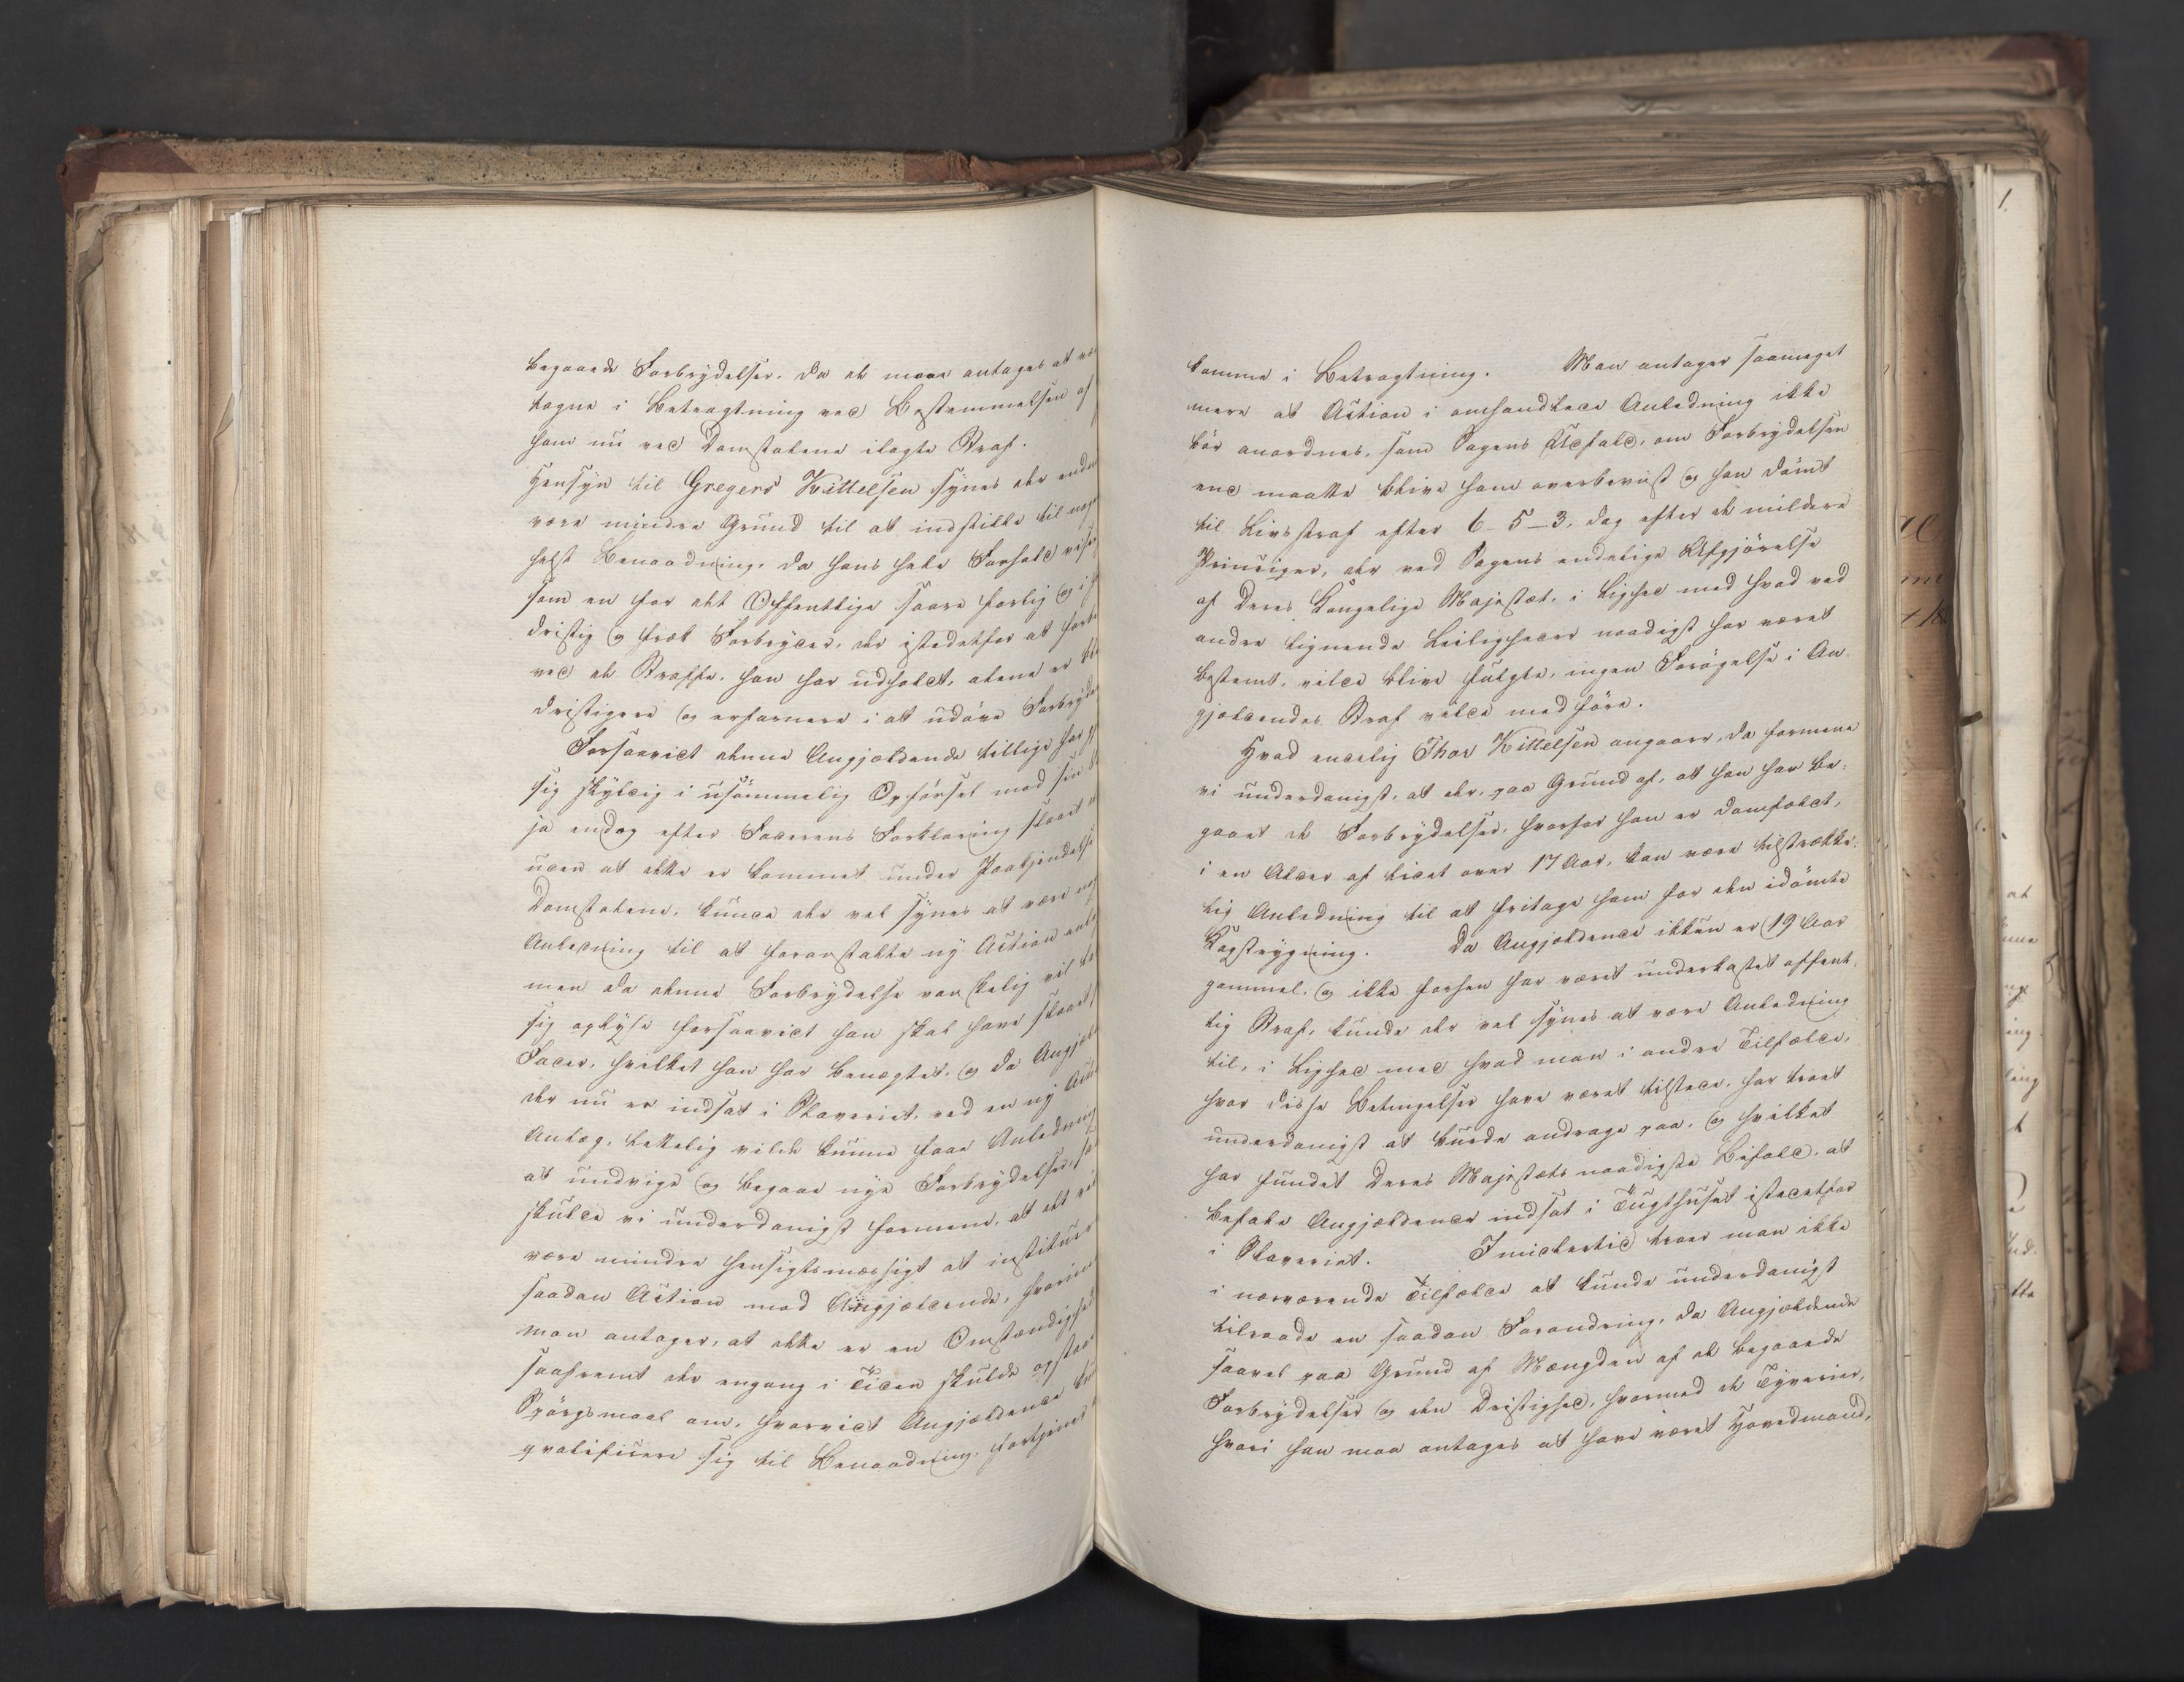 begaaede Forbrydelser, da de maae antages at væ
tagne i Betragtning ved Bestemmelsen af
ham nu ved Domstolene ilagte Straf.
Hensyn til Gregers Kittelsen synes der end
være mindre Grund til at indstille til nog
helst Benaadning, da hans hele Forhold viser
som en for det Offentlige saare farlig og i h
dristig og fræk Forbryder, der istedetfor at forb
ved de Straffe, han har udholdt, alene er ble
dristigere og erfarnere i at udöve Forbryd
Forsaavidt denne Angjældende tillige har gj
sig skyldig i usömmelig Opförsel mod sin
ja endog efter Faderens Forklaring slaaet
uden at dette er kommet under Paakjendelse
Domstolene, kunde der vel synes at være nog
Anledning til at foranstalte ny Action anl
men da denne Forbrydelse vanskelig vil la
sig oplyse forsaavidt han skal have slaaet
Fader, hvilket han har benægtet, og da Angjæl
der nu er indsat i Slaveriet, ved en ny Acti
Anlæg, lettelig vilde kunne faae Anledning
at undvige og begaae nye Forbrydelser, saa
skulde vi underdanigst formene, at det vil
være mindre hensigtsmæssigt at instituere
saadan Action mod Angjældende, hvorimod
man antager, at dette er en Omstændighed
saafremt der engang i Tiden skulde opstaae
Spörgsmaal om, hvorvidt Angjældende kun
qvalificere sig til Benaadning, fortjener
komme i Betragtning. Man antager saameget
mere at Action i omhandlede Anledning ikke
bör anordnes, som Sagens Udfald, om Forbrydelsen
end maatte blive ham overbeviist og han dömt
til Livsstraf efter 6-5-3, dog efter de mildere
Principer, der ved Sagens endelige Afgjörelse
af Deres Kongelige Majestæt, i Lighed med hvad ved
andre lignende Leiligheder naadigst har været
bestemt, vilde blive fulgte, ingen Forögelse i An-
gjældendes Straf vilde medföre.
Hvad endelig Thor Kittelsen angaaer, da formene
vi underdanigst, at der, paa Grund af, at han har be-
gaaet de Forbrydelser, hvorfor han er domfældt,
i en Alder af lidet over 17 Aar, kan være tilstrække-
lig Anledning til at fritage ham for den idömte
Kagstrygning. Da Angjældende ikkun er 19 Aar
gammel, og ikke forhen har været underkastet offent-
lig Straf, kunde der vel synes at være Anledning
til, i Lighed med hvad man i andre Tilfælde,
hvor disse Betingelser have været tilstede, har troet
underdanigst at burde andrage paa, og hvilket
har fundet Deres Majestæts naadigste Bifald, at
befale Angjældende indsat i Tugthuset istedetfor
i Slaveriet. Imidlertid troer man ikke
i nærværende Tilfælde at kunde underdanigst
tilraade en saadan Forandring, da Angjældende
saavel paa Grund af Mængden af de begaaede
Forbrydelser og den Dristighed, hvormed de Tyverier,
hvori han maa antages at have været Hovedmand,
1.